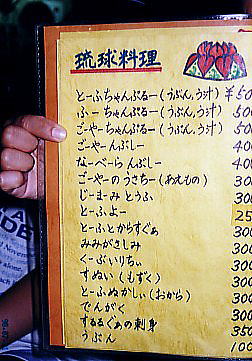 琉球料理
とーふちゃんぷるー(うぶん,う汁) ¥50
ふーちゃんぷるー(うぶん,う汁) 50
ごーやーちゃんぷるー(うぶん,う汁) 50
ごーやーんぶしー 400
なーべーらんぶしー 40
ごーやーのうさちー(あえもの) 300
じーまーみとうふ 300
とーふよー 25
とーふとからすぐゎ 300
みみがさしみ 300
くーぶいりちぃ 300
すぬい(もずく) 300
とーふぬかしぃ(おから) 300
でんがく 300
するるぐゎの刺身 350
うぶん 100